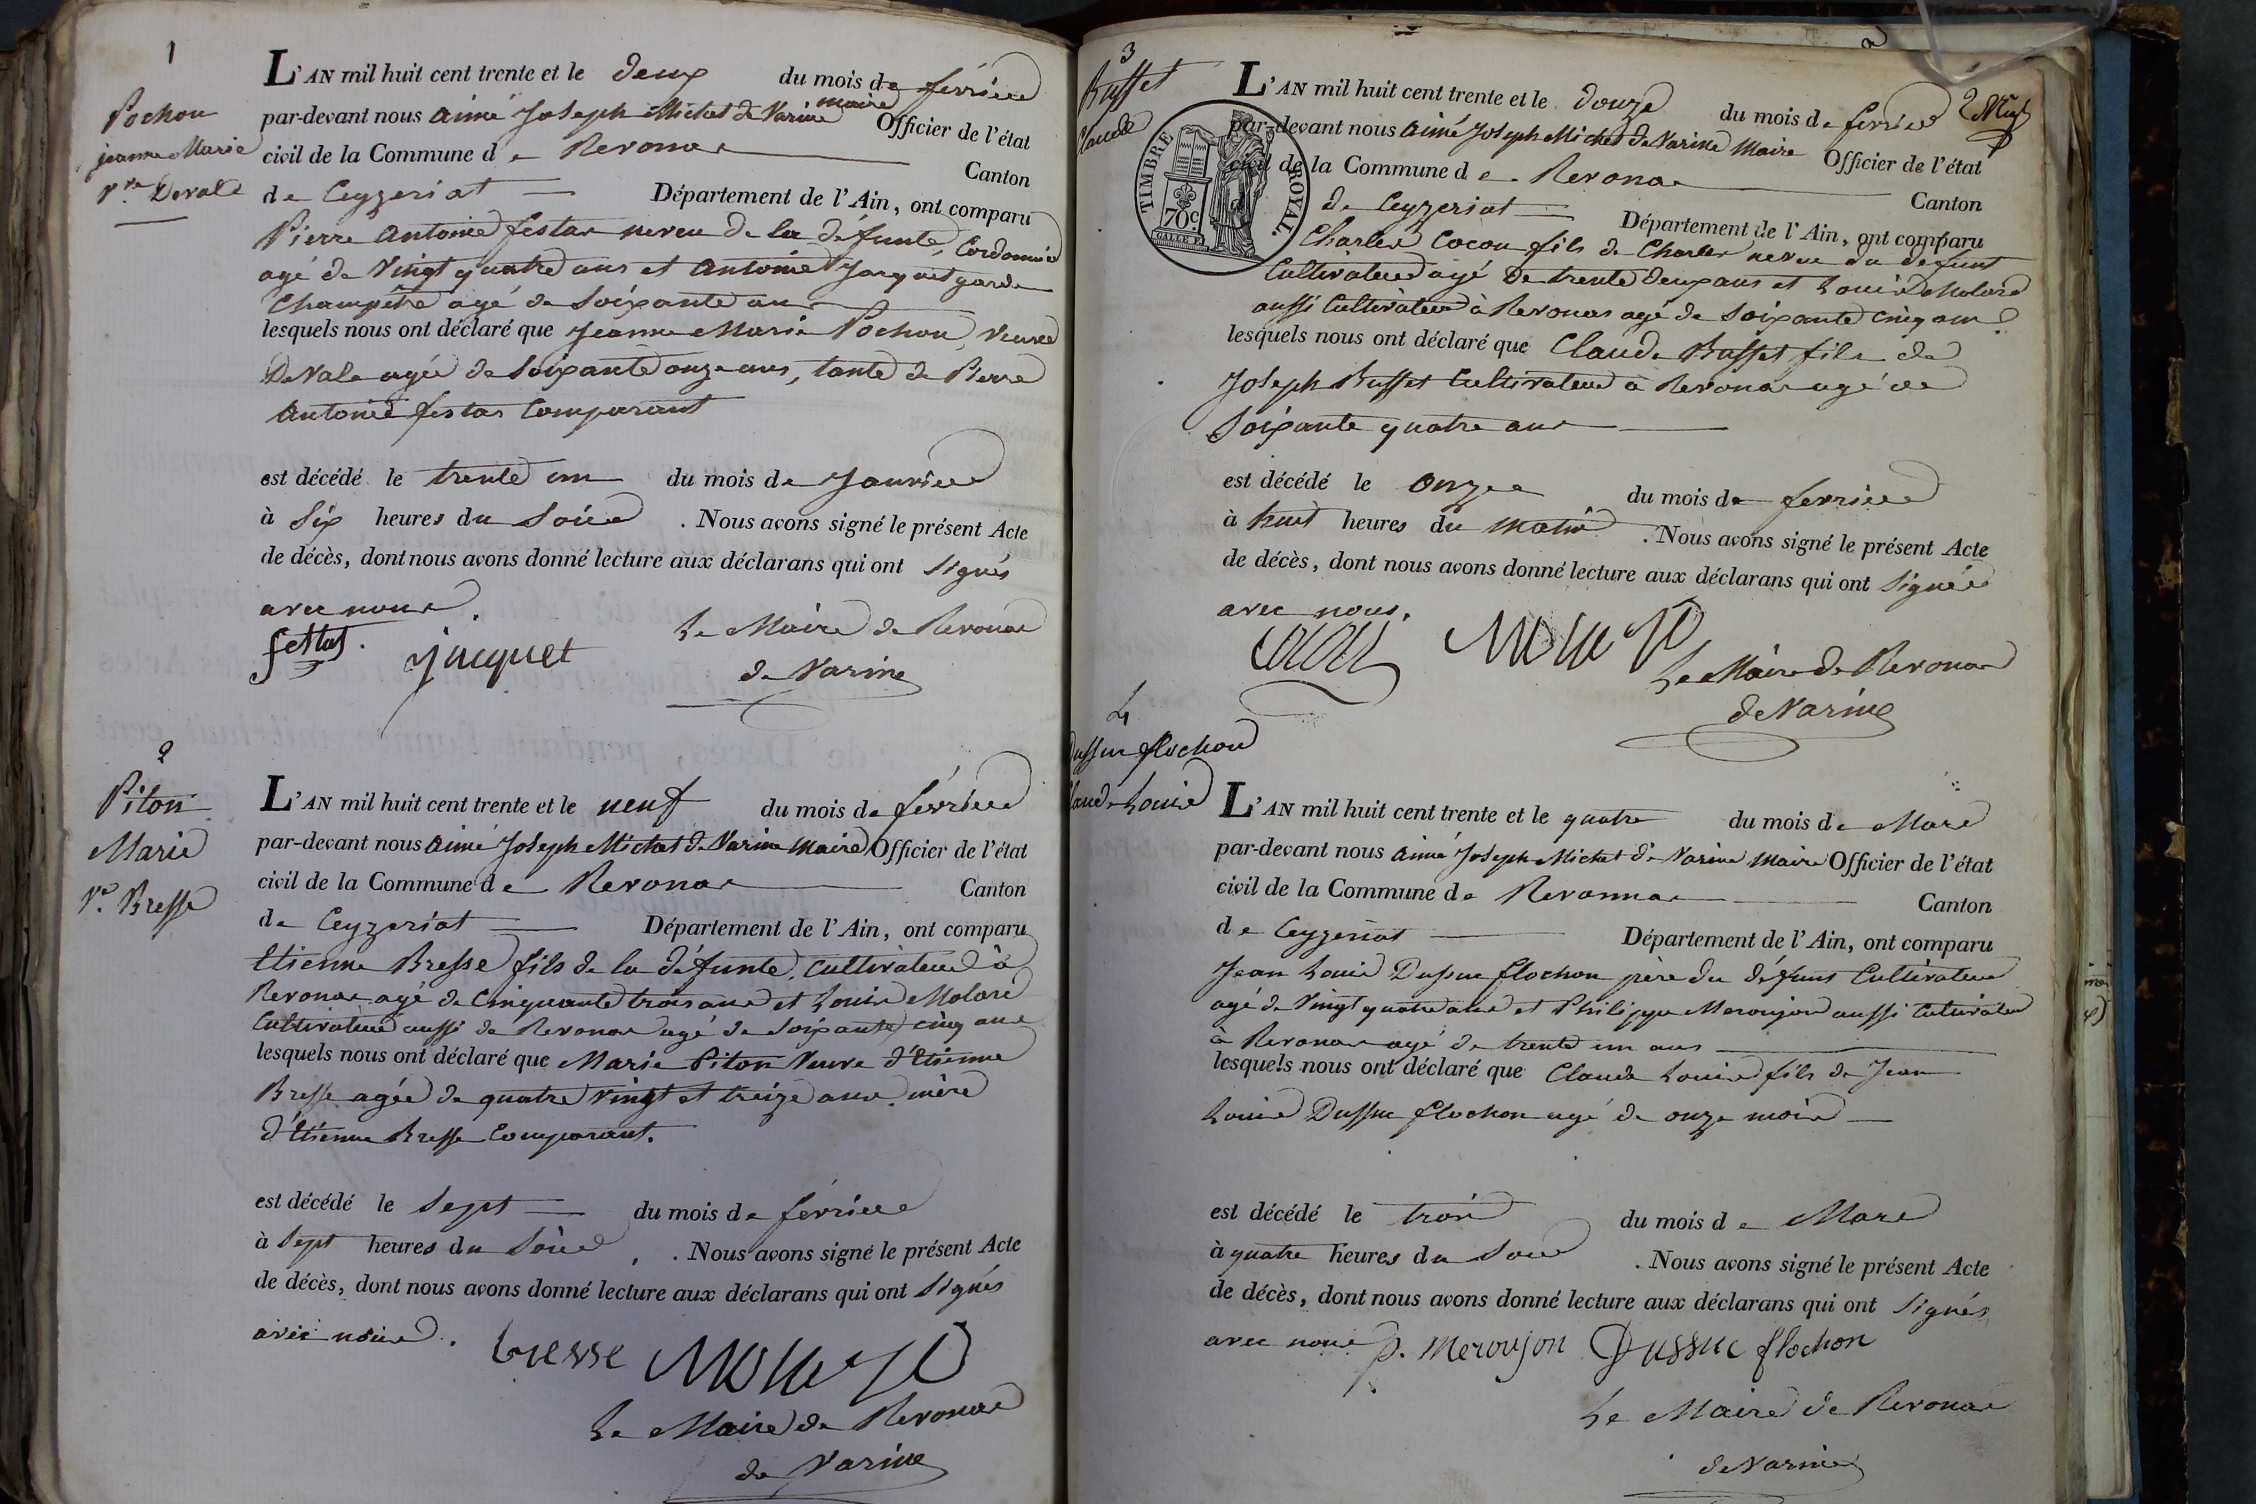 1
Pochon
jeanne Marie
Vve Devale
L'AN mil huit cent trente et le deux du mois de février
par-devant nous aimé Joseph Michet de Varine maire Officier de l'état
civil de la Commune de Revonas Canton
de Ceyzeriat Département de l'Ain, ont comparu
Pierre Antoine festas neveu de la défunte, Cordonnié
agé de Vingt quatre ans et Antoine Jacquet garde
Champêtre agé de Soixante ans
lesquels nous ont déclaré que Jeanne Marie Pochon, Veuve
DeVale agée de Soixante onze ans, tante de Pierre
Antoine festas Comparant
est décédé le trente un du mois de Janvier
à Six heures du Soir . Nous avons signé le présent Acte
de décès, dont nous avons donné lecture aux déclarans qui ont signés
avec nous.
festas. jacquet Le Maire de Revonas
de Varine
2
Piton
Marie
Ve. Bresse
L'AN mil huit cent trente et le neuf du mois de février
par-devant nous aimé Joseph Michet de Varine maire Officier de l'état
civil de la Commune de Revonas Canton
de Ceyzeriat Département de l'Ain, ont comparu
Etienne Bresse fils de la défunte, Cultivateur à
Revonas agé de Cinquante trois ans et Louis Molard
Cultivateur aussi de Revonas agé de Soixante cinq ans
lesquels nous ont déclaré que Marie Piton Veuve d'Etienne
Bresse agée de quatre Vingt et treize ans mère
d'Etienne Bresse Comparant.
est décédé le Sept du mois de février
à Sept heures du Soir . Nous avons signé le présent Acte
de décès, dont nous avons donné lecture aux déclarans qui ont signés
avec nous.
bresse Molard
Le Maire de Revonas
de Varine
3
Buffet
Claude
TIMBRE ROYAL.
70c.
L'AN mil huit cent trente et le douze du mois de février
par-devant nous aimé Joseph Michet de Varine Maire Officier de l'état
civil de la Commune de Revonas Canton
de Ceyzeriat Département de l'Ain, ont comparu
Charles Cocon fils de Charles neveu du defunt
Cultivateur agé De trente deux ans et Louis Molard
aussi Cultivateur à Revonas agé de Soixante cinq ans
lesquels nous ont déclaré que Claude Buffet fils de
Joseph Buffet Cultivateur à Revonas agé de
Soixante quatre ans
est décédé le Onze du mois de fevrier
à huit heures du matin . Nous avons signé le présent Acte
de décès, dont nous avons donné lecture aux déclarans qui ont signés
avec nous.
Cocon Molard
Le Maire de Revonas
de Varine
4
Dussuc flochon
Claude Louis
L'AN mil huit cent trente et le quatre du mois de Mars
par-devant nous aimé Joseph Michet de Varine Maire Officier de l'état
civil de la Commune de Revonnas Canton
de Ceyzeriat Département de l'Ain, ont comparu
Jean Louis Dussuc flochon père du défunt Cultivateur
agé de Vingt quatre ans et Philippe Meroujon aussi Cultivateur
à Revonas agé de trente un ans
lesquels nous ont déclaré que Claude Louis fils de Jean
Louis Dussuc flochon agé de onze mois
est décédé le trois du mois de Mars
à quatre heures du Soir . Nous avons signé le présent Acte
de décès, dont nous avons donné lecture aux déclarans qui ont signés
avec nous p. Meroujon Dussuc flochon
Le Maire de Revonas
de Varine